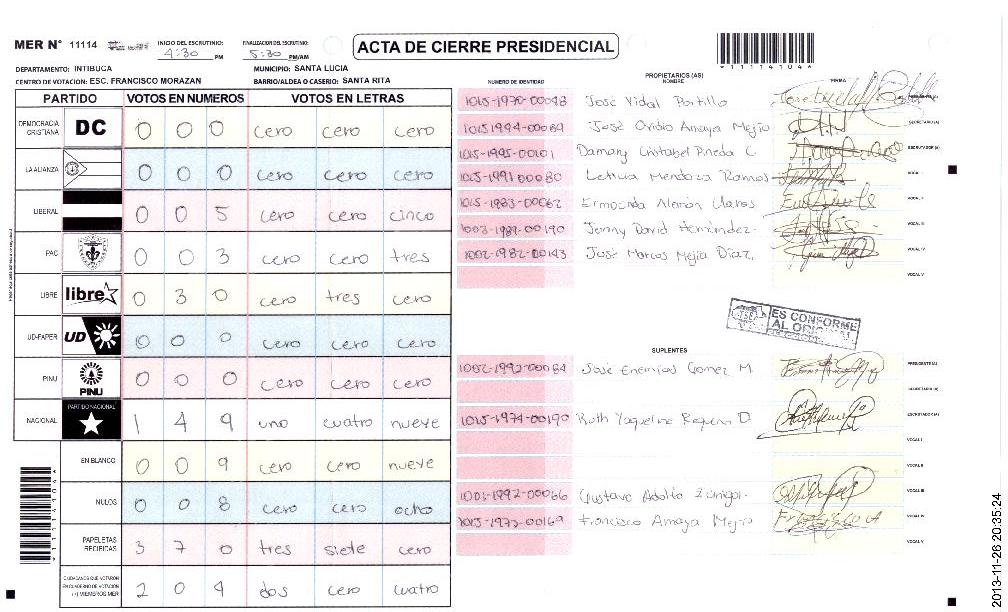 MER N° 11114
INICIO DEL ESCRUTINIO: 4:30 PM
FINALIZACION DEL ESCRUTINIO: 5:30 PM/AM
ACTA DE CIERRE PRESIDENCIAL
*1111410 4*
DEPARTAMENTO: INTIBUCA
MUNICIPIO: SANTA LUCIA
CENTRO DE VOTACION: ESC. FRANCISCO MORAZAN
BARRIO/ALDEA O CASERIO: SANTA RITA
PARTIDO VOTOS EN NUMEROS VOTOS EN LETRAS
DEMOCRACIA CRISTIANA DC 0 0 0 cero cero cero
LA ALIANZA 0 0 0 cero cero cero
LIBERAL 0 0 5 cero cero cinco
PAC 0 0 3 cero cero tres
LIBRE libre 0 3 0 cero tres cero
UD-FAPER UD 0 0 0 cero cero cero
PINU PINU 0 0 0 cero cero cero
NACIONAL PARTIDO NACIONAL 1 4 9 uno cuatro nueve
EN BLANCO 0 0 9 cero cero nueve
NULOS 0 0 8 cero cero ocho
PAPELETAS RECIBIDAS 3 7 0 tres siete cero
CIUDADANOS QUE VOTARON EN CUADERNO DE VOTACION (+) MIEMBROS MER 2 0 4 dos cero cuatro
NUMERO DE IDENTIDAD
PROPIETARIOS (AS) NOMBRE
FIRMA
1015-1970-00048 José Vidal Portillo
10151994-00069 José Ovidio Amaya Mejía SECRETARIO (A)
1015-1995-00101 Damary Cristabel Pineda C. ESCRUTADOR (A)
1015-1991 00080 Leticia Mendoza Ramos VOCAL I
1015-1983-00062 Ermecinda Alemán Llanos VOCAL II
1003-1989-00190 Jenny David Hernández VOCAL III
1002-1982-00143 José Marcos Mejía Díaz. VOCAL IV
VOCAL V
ES CONFORME
AL ORIGINAL
SUPLENTES
1002-1992-00084 José Enemias Gomez M. PRESIDENTE (A)
SECRETARIO (A)
1015-1974-00190 Ruth Yaqueline Requeno D. ESCRUTADOR (A)
VOCAL I
VOCAL II
1003-1992-00066 Gustavo Adolfo VOCAL III
1015-1973-00169 Francisco Amaya Mejia VOCAL IV
VOCAL V
2013-11-26 20:35:24